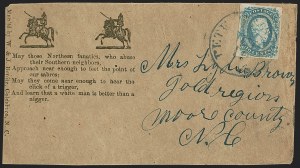 May those Northern fanatics, who abuse
their Southern neighbors,
Approach near enough to feel the point of
our sabres;
May they come near enough to hear the
click of a trigger,
And learn that a white man is better than a
nigger.
PETE
Mrs Lydia Brower
Gold region
Moore County
N.C